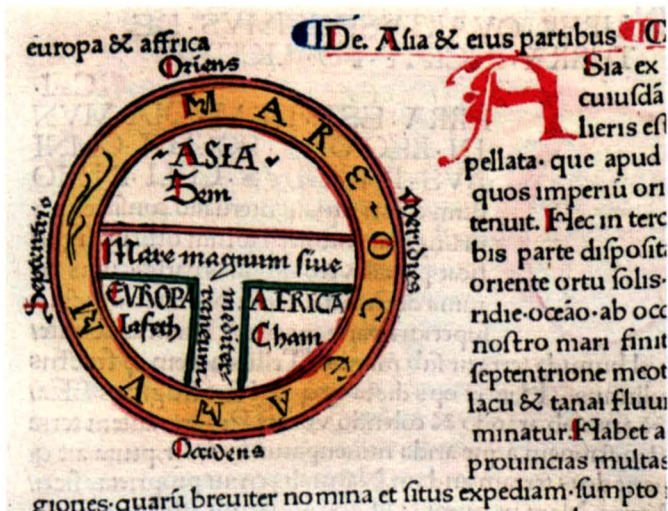 europa & affrica
De. Asia & eius partibus
Oriens
MARE OCEANVM
ASIA
Sem
Septentrio
Meridies
Mare magnum siue
mediterraneum
EVROPA
Iafeth
AFRICA
Cham
Occidens
Asia ex
cuiusdā
lieris est
pellata· que apud
quos imperiū ori
tenuit. Hec in terc
bis parte disposit
oriente ortu solis·
ridie·oceāo·ab occ
nostro mari finit
septentrione meot
lacu & tanai fluui
minatur. Habet a
prouincias multas
giones·quarū breuiter nomina et situs expediam·sumpto